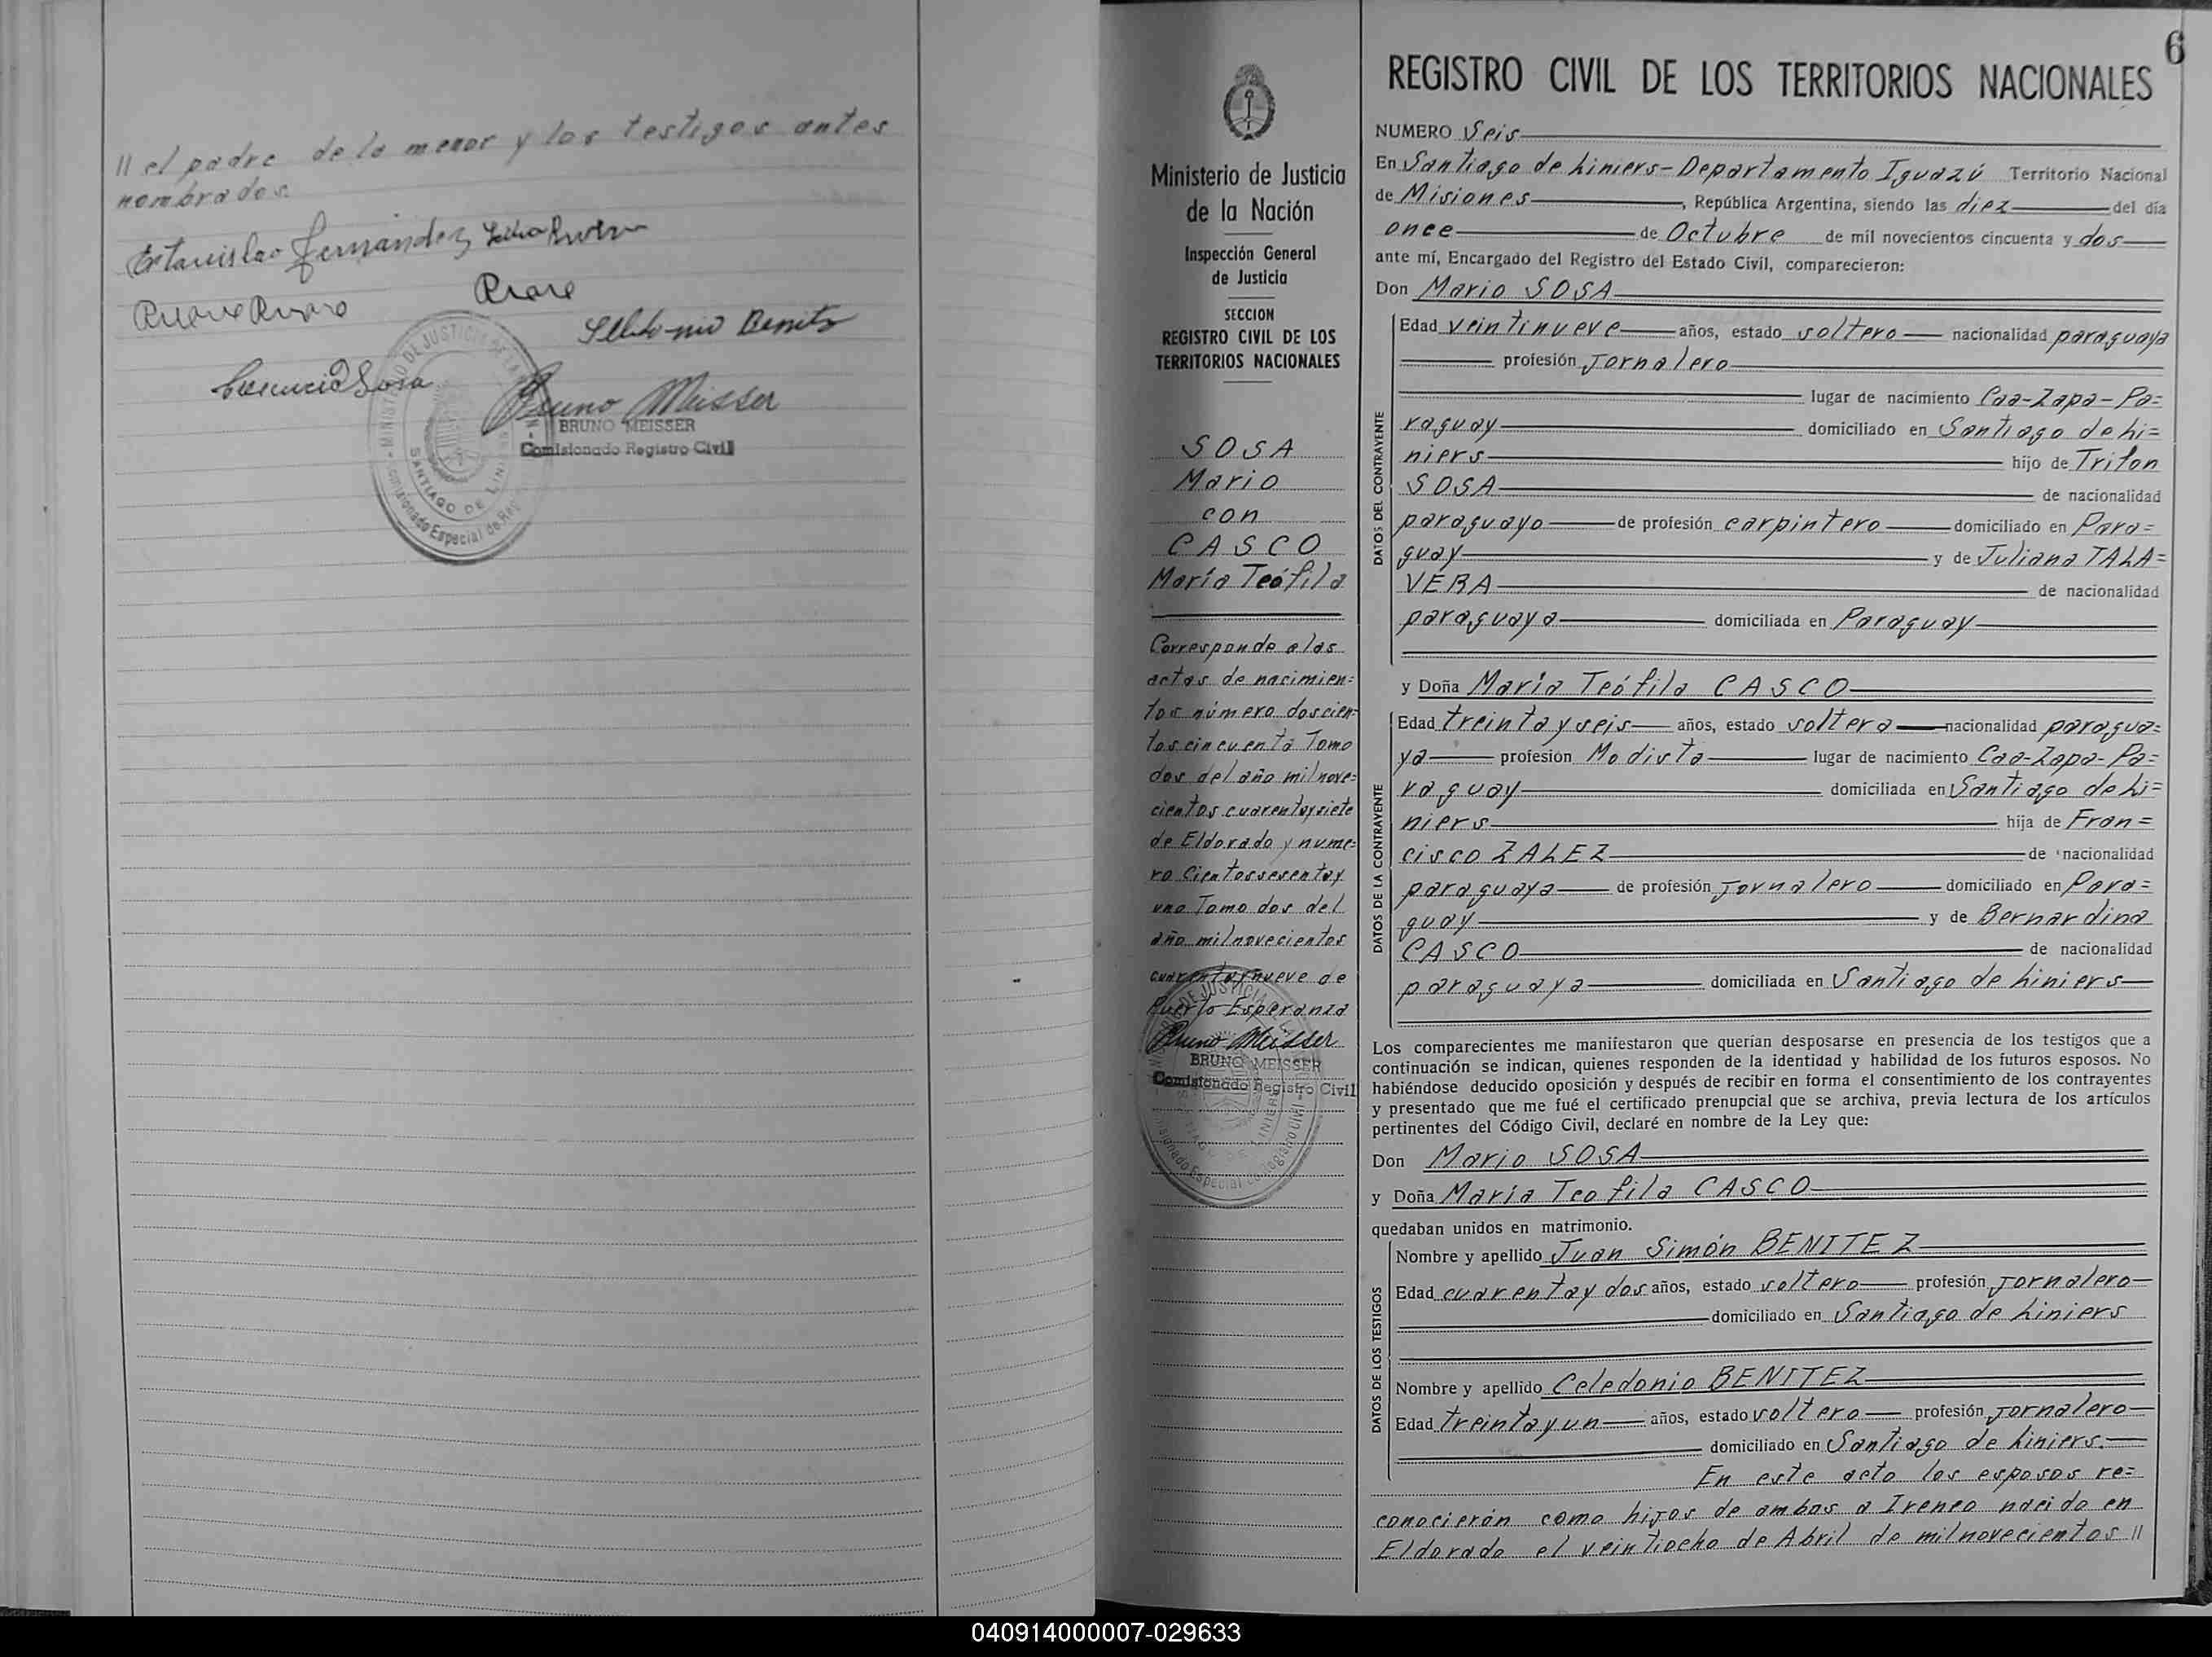 // el padre de la menor y los testigos antes
nombrados.
Estanislao Fernández
Bruno Meisser
BRUNO MEISSER
Comisionado Registro Civil
SANTIAGO DE LINIERS
6
REGISTRO CIVIL DE LOS TERRITORIOS NACIONALES
Ministerio de Justicia
de la Nación
Inspección General
de Justicia
SECCION
REGISTRO CIVIL DE LOS
TERRITORIOS NACIONALES
SOSA
Mario
con
CASCO
María Teófila
Corresponde a las
actas de nacimien=
tos número doscien=
tos cincuenta Tomo
dos del año mil nove=
cientos cuarenta y siete
de Eldorado y núme=
ro Ciento sesenta y
uno Tomo dos del
año mil novecientos
cuarenta y nueve de
Puerto Esperanza
Bruno Meisser
BRUNO MEISSER
Comisionado Registro Civil
NUMERO Seis
En Santiago de Liniers-Departamento Iguazú Territorio Nacional
de Misiones, República Argentina, siendo las diez del día
once de Octubre de mil novecientos cincuenta y dos
ante mí, Encargado del Registro del Estado Civil, comparecieron:
Don Mario SOSA
DATOS DEL CONTRAYENTE
Edad veintinueve años, estado soltero nacionalidad paraguaya
profesión Jornalero
lugar de nacimiento Caa-Zapa-Pa=
raguay domiciliado en Santiago de Li=
niers hijo de Trifon
SOSA de nacionalidad
paraguayo de profesión carpintero domiciliado en Para=
guay y de Juliana TALA=
VERA de nacionalidad
paraguaya domiciliada en Paraguay
y Doña María Teófila CASCO
DATOS DE LA CONTRAYENTE
Edad treinta y seis años, estado soltera nacionalidad paragua=
ya profesión Modista lugar de nacimiento Caa-Zapa-Pa=
raguay domiciliada en Santiago de Li=
niers hija de Fran=
cisco ZALEZ de nacionalidad
paraguaya de profesión Jornalero domiciliado en Para=
guay y de Bernardina
CASCO de nacionalidad
paraguaya domiciliada en Santiago de Liniers
Los comparecientes me manifestaron que querían desposarse en presencia de los testigos que a
continuación se indican, quienes responden de la identidad y habilidad de los futuros esposos. No
habiéndose deducido oposición y después de recibir en forma el consentimiento de los contrayentes
y presentado que me fué el certificado prenupcial que se archiva, previa lectura de los artículos
pertinentes del Código Civil, declaré en nombre de la Ley que:
Don Mario SOSA
y Doña María Teofila CASCO
quedaban unidos en matrimonio.
DATOS DE LOS TESTIGOS
Nombre y apellido Juan Simón BENITEZ
Edad cuarenta y dos años, estado soltero profesión Jornalero
domiciliado en Santiago de Liniers
Nombre y apellido Celedonio BENITEZ
Edad treinta y un años, estado soltero profesión Jornalero
domiciliado en Santiago de Liniers.
En este acto los esposos re=
conocierón como hijos de ambos a Ireneo nacido en
Eldorado el veintiocho de Abril de mil novecientos //
040914000007-029633